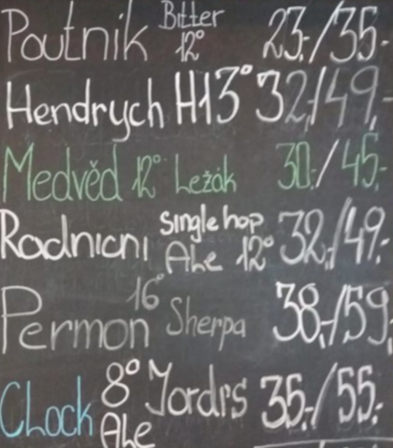 Poutnik Bitter 12° 23,-/35,-
Hendrych H13° 32,-/49,-
Medvěd 12° Ležák 30,-/45,-
Radnicni Single hop Ale 12° 32,-/49,-
Permon 16° Sherpa 38,-/59,
Clock 8° Yordi's Ale 35,-/55,-